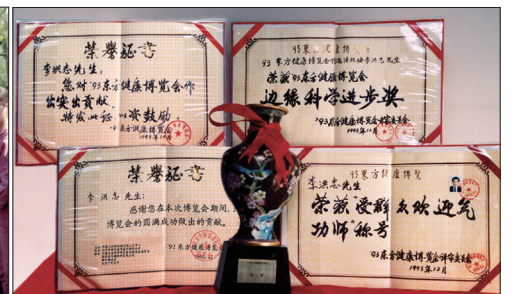 荣誉证书
李洪志先生:
您对'93东方健康博览会作
出突出贡献。
特发此证,以资鼓励
'93东方健康博览会
1993年12月
93东方健康博览会
93东方健康博览会
李洪志先生
荣获'93东方健康博览会
边缘科学进步奖
'93东方健康博览会
1993年12月
荣誉证书
李洪志先生:
感谢您在本次博览会期间,
博览会的圆满成功做出的贡献。
'92东方健康博览
93东方健康博览
李洪志先生
荣获受群众欢迎气
功师称号
93东方健康博览会评审委员会
1993年12月